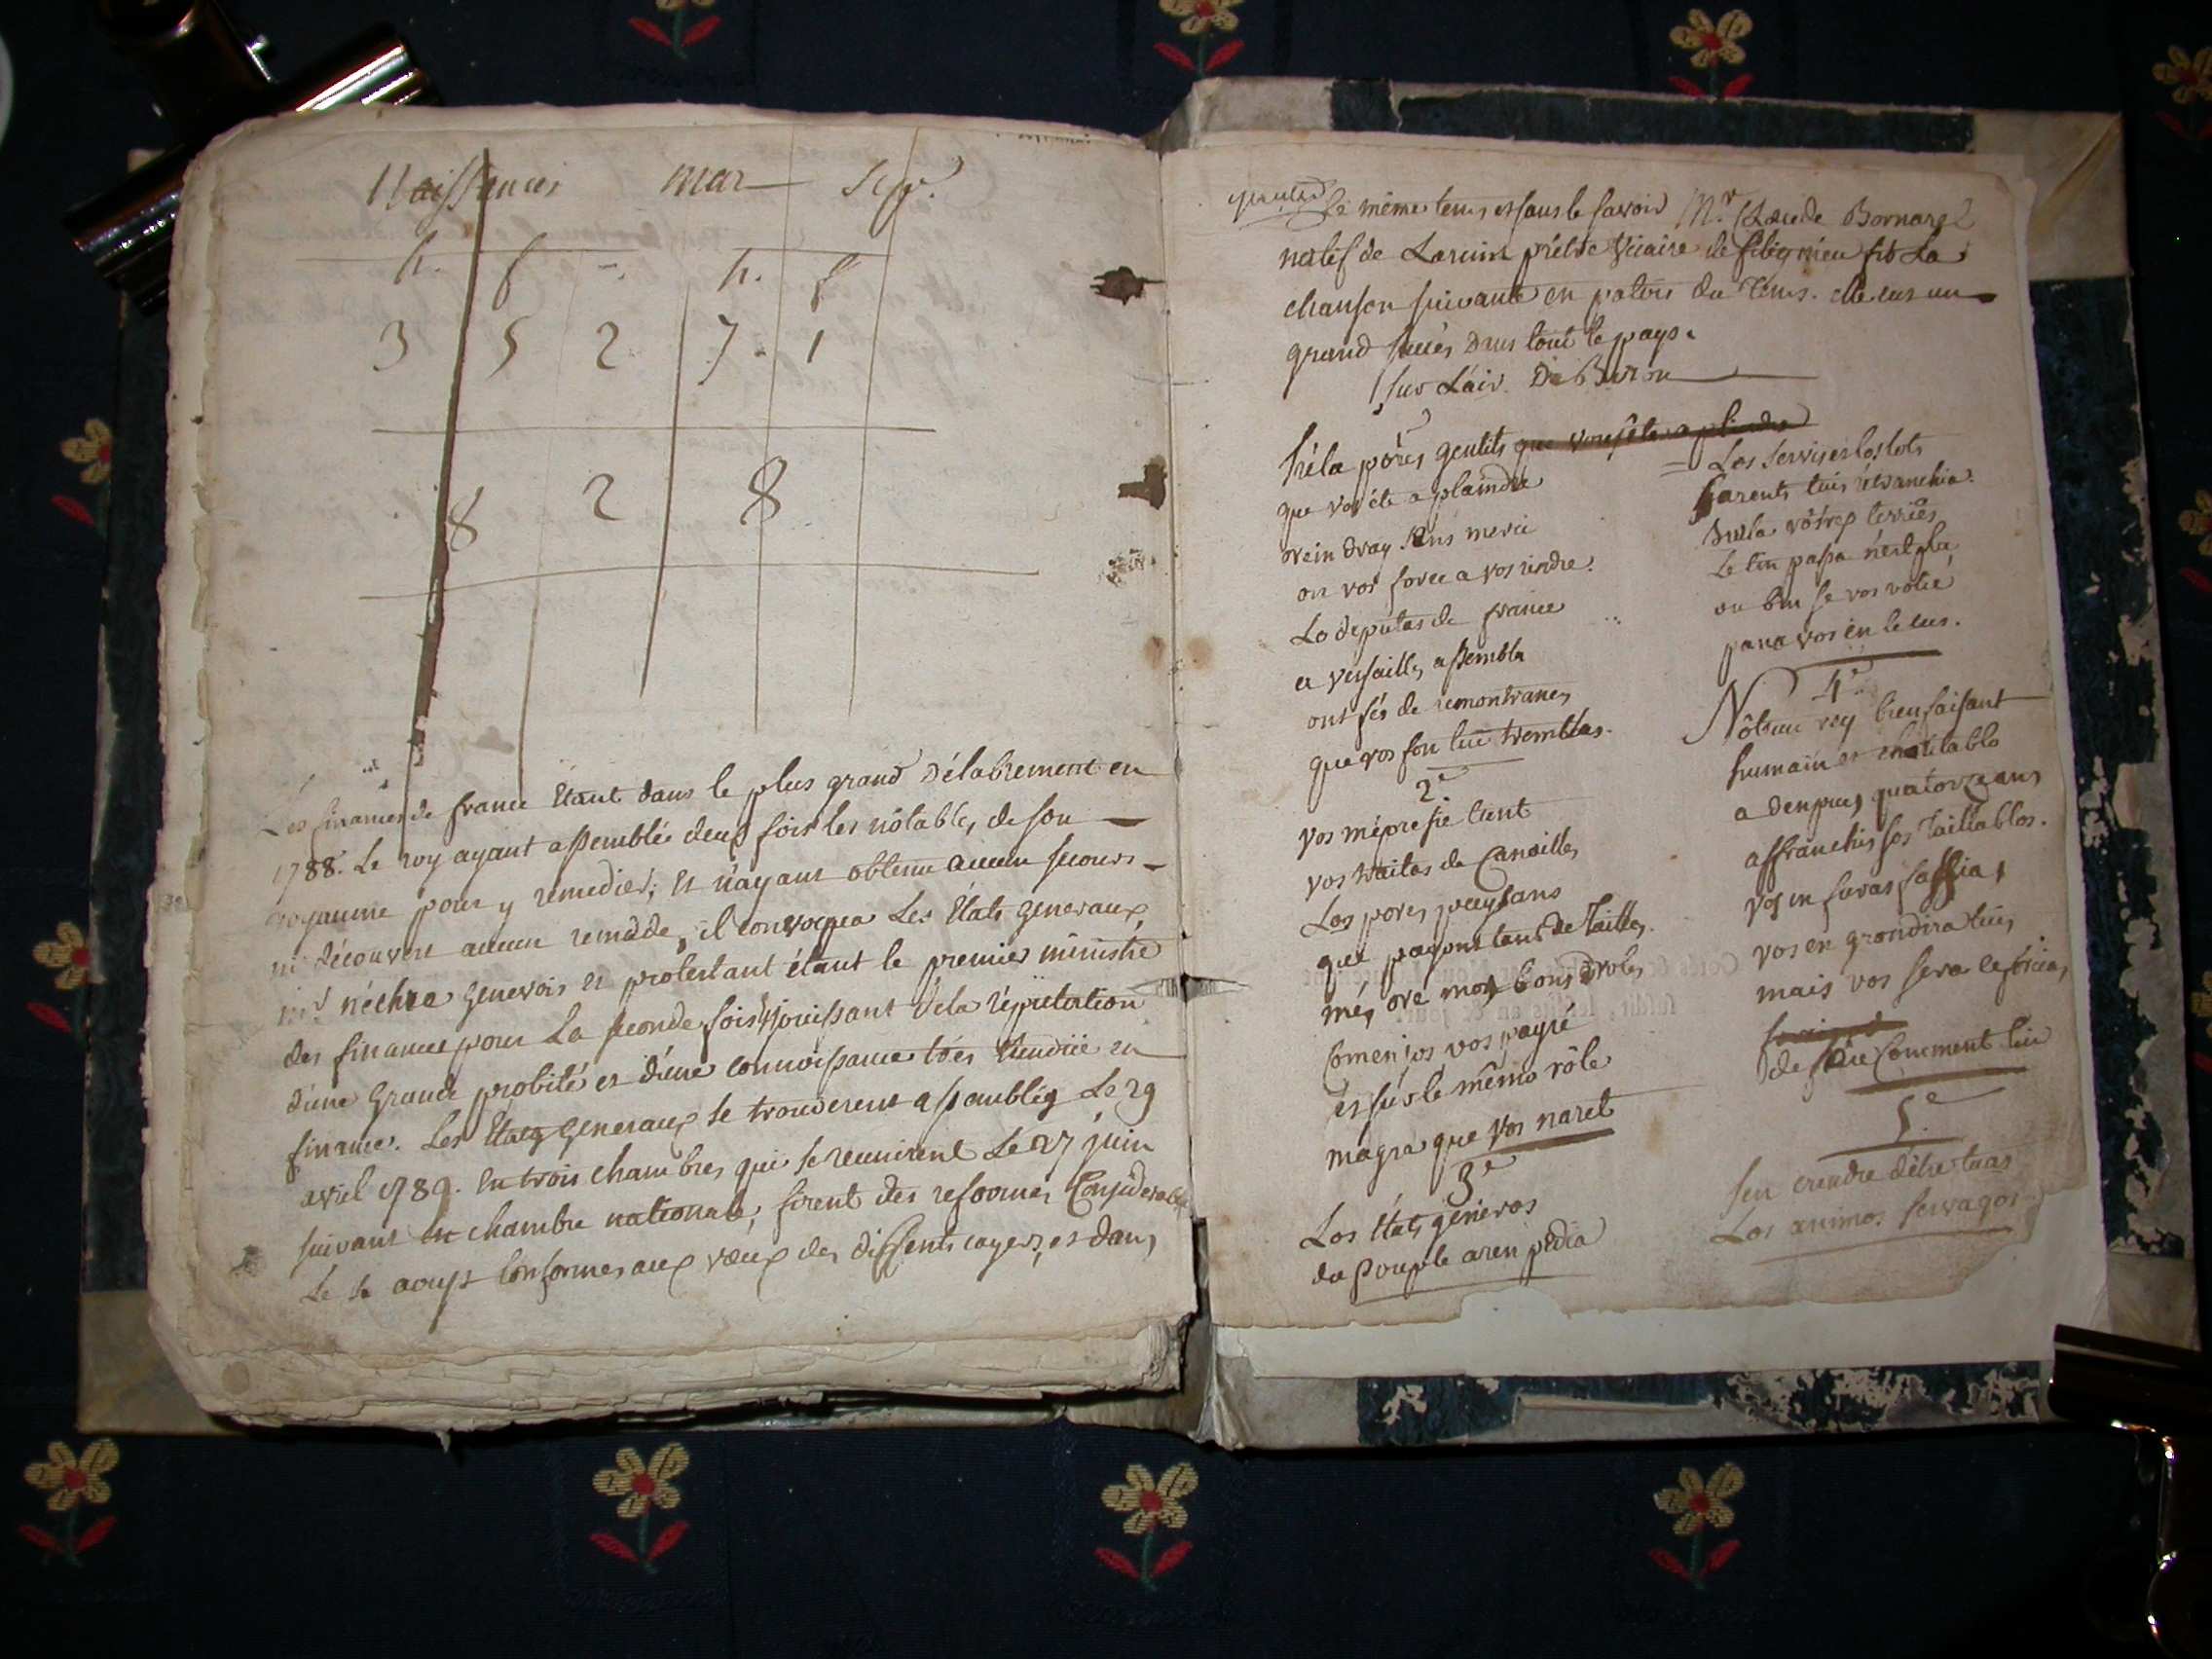 Naissances mar Sep.
h. f h. f
3 5 2 7 1
8 2 8
Les finances de france étant dans le plus grand délabrement en
1788. Le roy ayant assemblé deux fois les nôtables de son
royaume pour y remedier; et n'ayant obtenu aucun secours
ni découvert aucun remedde, il convoqua Les Etats generaux
mr. néckre genevois et protestant étant le premier ministre
des finances pour La seconde fois jouissant de la réputation
d'une grande probité et d'une connoissance très etendüe en
finance. Les Etats generaux se trouverent assemblés Le 29
avril 1789. en trois chambres qui se reunirent Le 27 juin
suivant en chambre nationale, firent des reformes Considerables
Le aoust conformes aux vœux des differents cayers, et dans
le même tems et sans le savoir Mr. Claude Bornarel
natif de Lacuim prêtre Vicaire de filignieu fit La
chanson suivante en patois du tems. elle eut un
grand succès dans tout le pays.
sur L'air Du Biron
héla pôres gentils que vous ête a plindre
que vos éte a plaindre
orein dray sens merci
on vos force a vos rendre.
Lo députas de france
a versailles assembla
ont fés de remontrances
que vos fon tui tremblas.
2e
vos méprisié tant
vos traitas de Canailles
Los pores paysans
que payont tant de Tailles.
més ore mos bons drolos
Comencios vos payré
et su le mémo rôle
magra que vos naret
3e
Los Etats géneros
du Pouple aren pedia
Los servis et los lots
Sarents tuis retranchia.
Su la vôtres terries
Le tin passa n'est plu
ou bin se vos volié
pana vos en le cus.
4e
Nôtrun roy bienfaisant
humain et charitablo
a denpuis quatorze ans
affranchis sos Taillablos.
vos en suras fassia,
vos en grondira tuis
mais vos sera
de faire Comment lui
5e
sen crendre d'être tuas
Los animos servagos